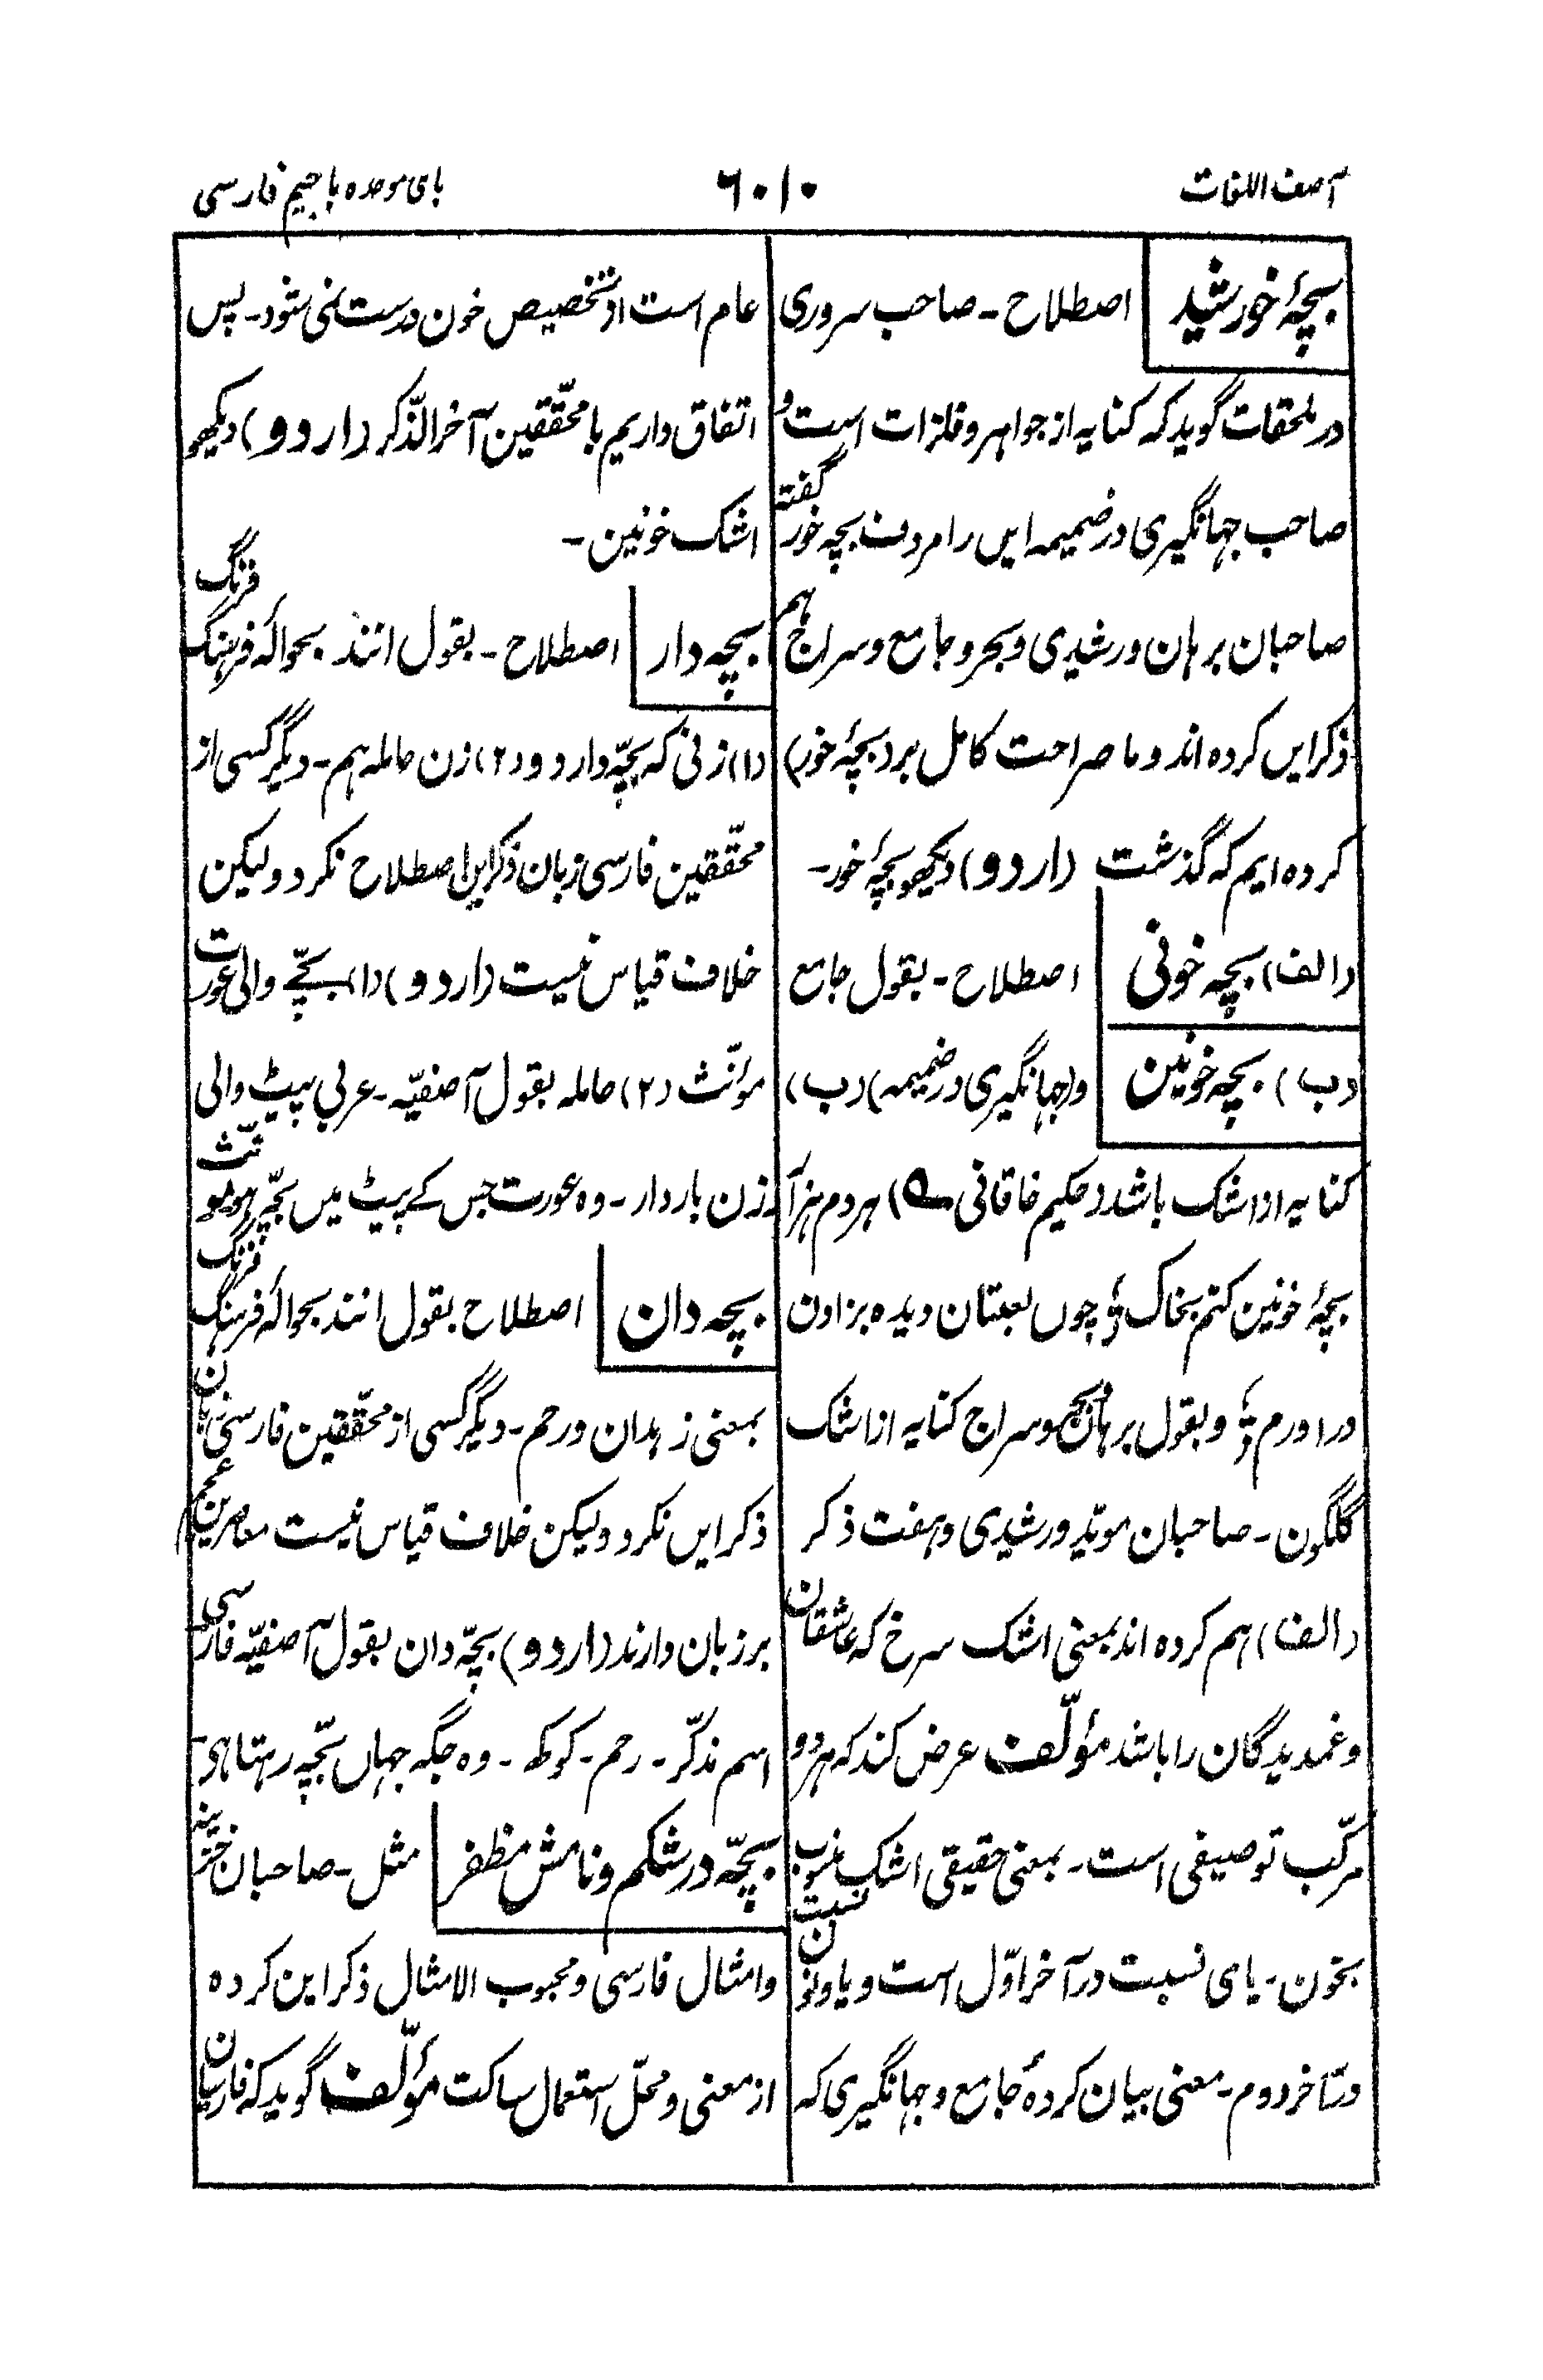 آصف اللغات
۶۰۱۰
بای موحده با جیم فارسی
بچۂ خورشید اصطلاح ۔ صاحب سروری
در ملحقات گوید کہ کنایہ از جواہر و فلزات است و
صاحب جہانگیری در ضمیمہ ایں را مرادف بچہ خور گفتہ
صاحبان برہان و رشیدی و بحر و جامع و سراج ہم
ذکر ایں کردہ اند و ما صراحت کامل بر (بچۂ خور)
کردہ ایم کہ گذشت (اردو) دیکھو بچۂ خور ۔
(الف) بچہ خونی اصطلاح ۔ بقول جامع
(ب) بچہ خونین و (جہانگیری در ضمیمہ) (ب)
کنایہ از اشک باشد (حکیم خاقانی ؎) ہر دم ہزار
بچۂ خونین کنم بخاک ؤ چوں لعبتان دیدہ بزادن
در اورم ؤ و بقول برہان و بحر و سراج کنایہ از اشک
گلگون ۔ صاحبان مویّد و رشیدی و ہفت ذکر
(الف) ہم کردہ اند بمعنی اشک سرخ کہ عاشقان
و غمدیدگان را باشد مؤلّف عرض کند کہ ہر دو
مرکّب توصیفی است ۔ بمعنی حقیقی اشک منسوب
بخون ۔ یای نسبت در آخر اوّل است و یا و نون نسبت
در آخر دوم ۔ معنی بیان کردۂ جامع و جہانگیری کہ
عام است از تخصیص خون درست نمی شود ۔ پس
اتفاق داریم با محقّقین آخر الذّکر (اردو) دیکھو
اشک خونین ۔
بچہ دار اصطلاح ۔ بقول انند بحوالۂ فرہنگ فرنگ
(۱) زنی کہ بچّہ دارد و (۲) زن حاملہ ہم ۔ دیگر کسی از
محقّقین فارسی زبان ذکر این اصطلاح نکرد ولیکن
خلاف قیاس نیست (اردو) (۱) بچّے والی عورت
مؤنّث (۲) حاملہ بقول آصفیّہ ۔ عربی پیٹ والی
زن باردار ۔ وہ عورت جس کے پیٹ میں بچّہ ہو مؤنّث
بچہ دان اصطلاح بقول انند بحوالۂ فرہنگ فرنگ
بمعنی زہدان و رحم ۔ دیگر کسی از محقّقین فارسی زبان
ذکر ایں نکرد ولیکن خلاف قیاس نیست معاصرین عجم
بر زبان دارند (اردو) بچّہ دان بقول آصفیّہ فارسی
اسم مذکّر ۔ رحم ۔ کوکھ ۔ وہ جگہ جہاں بچّہ رہتا ہے ۔
بچّہ در شکم و نامش مظفر مثل ۔ صاحبان خزینہ
و امثال فارسی و محبوب الامثال ذکر این کردہ
از معنی و محلّ استعمال ساکت مؤلّف گوید کہ فارسیان